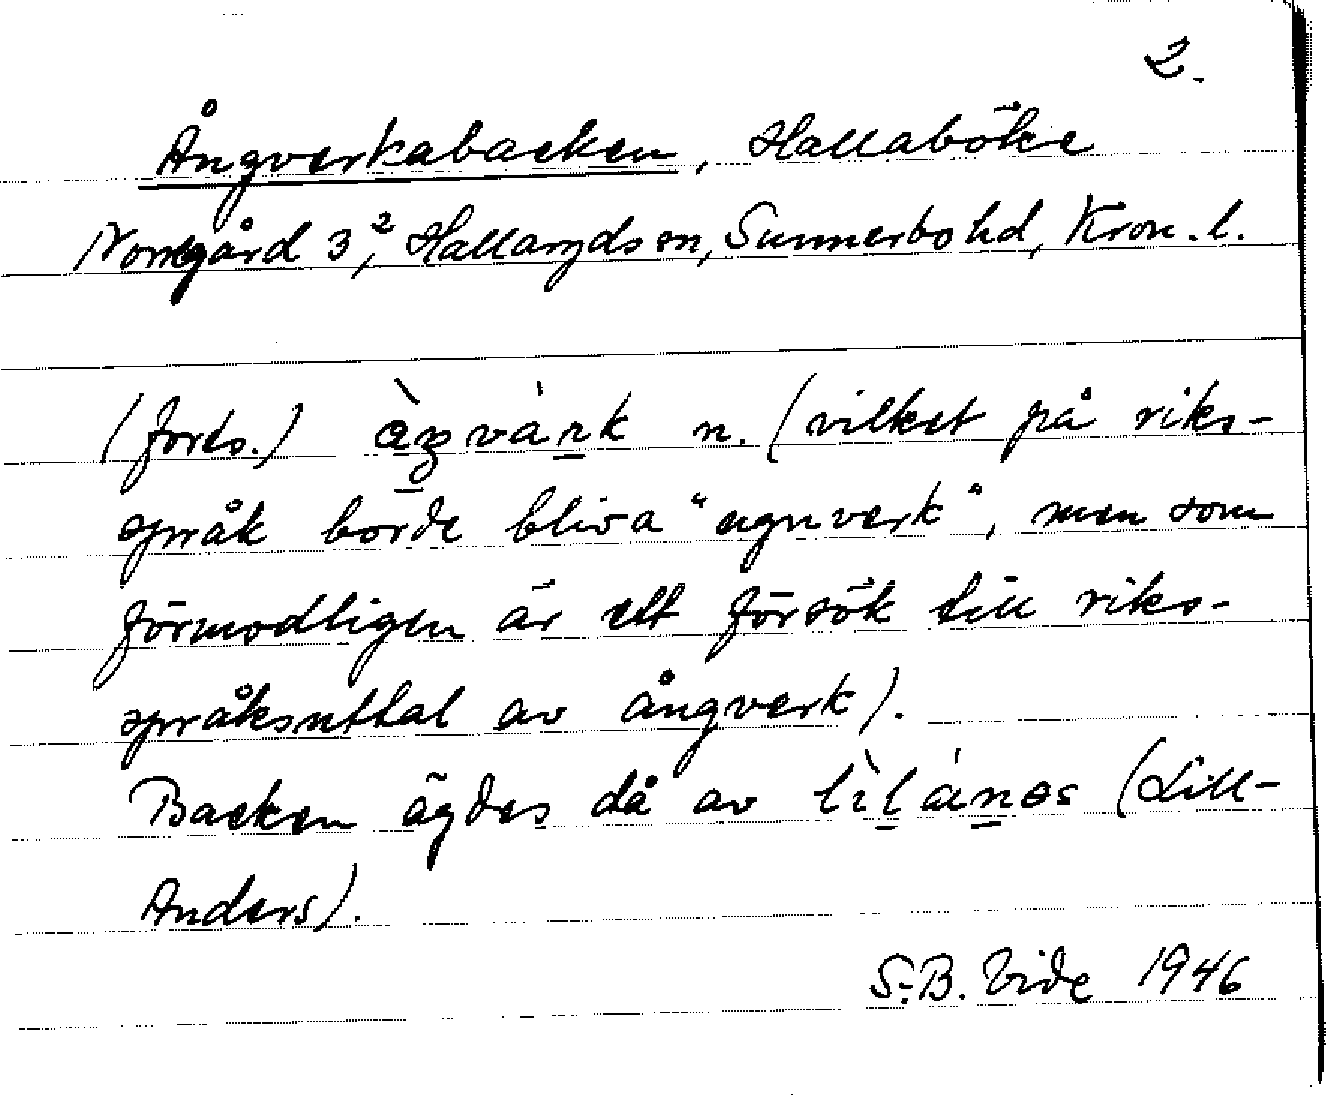 2.
Ångverkabacken, Hallaböke
Norregård 3², Hallaryds sn, Sunnerbo hd, Kron. l.
(forts.) n. (vilket på riks-
språk borde bliva "ugnverk", men som
förmodligen är ett försök till riks-
språksuttal av ångverk).
Backen ägdes då av (Lill-
Anders).
S.-B. Vide 1946